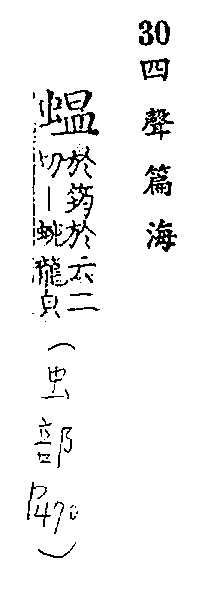 30四聲篇海
蝹於筠於云二
切｜蜿龍皃
（虫部
P470）